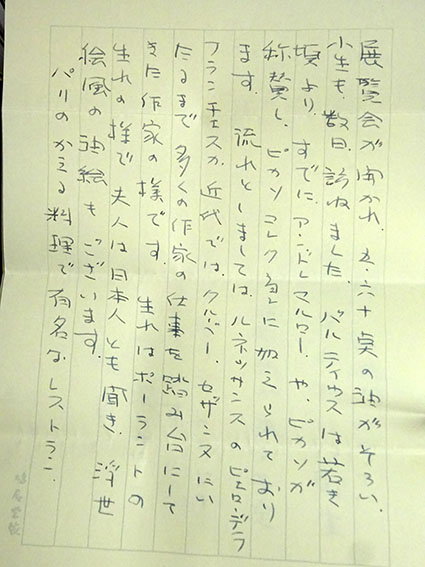 展覧会が開かれ、五・六十点の油がそろい、
小生も、数日、訪ねました。バルティウスは若き
頃より、すでに、アンドレマルロー、や、ピカソが
称賛し、ピカソコレクションに加えられており
ます。流れとしましては、ルネッサンスのピエロ・デラ
フランチェスカ、近代では、クルベー、セザンヌにい
たるまで多くの作家の仕事を踏み台にして
きた作家の様です。生れはポーラントの
生れの様で夫人は日本人とも聞き、浮世
絵風の油絵もございます。
パリのかえる料理で有名なレストラン、